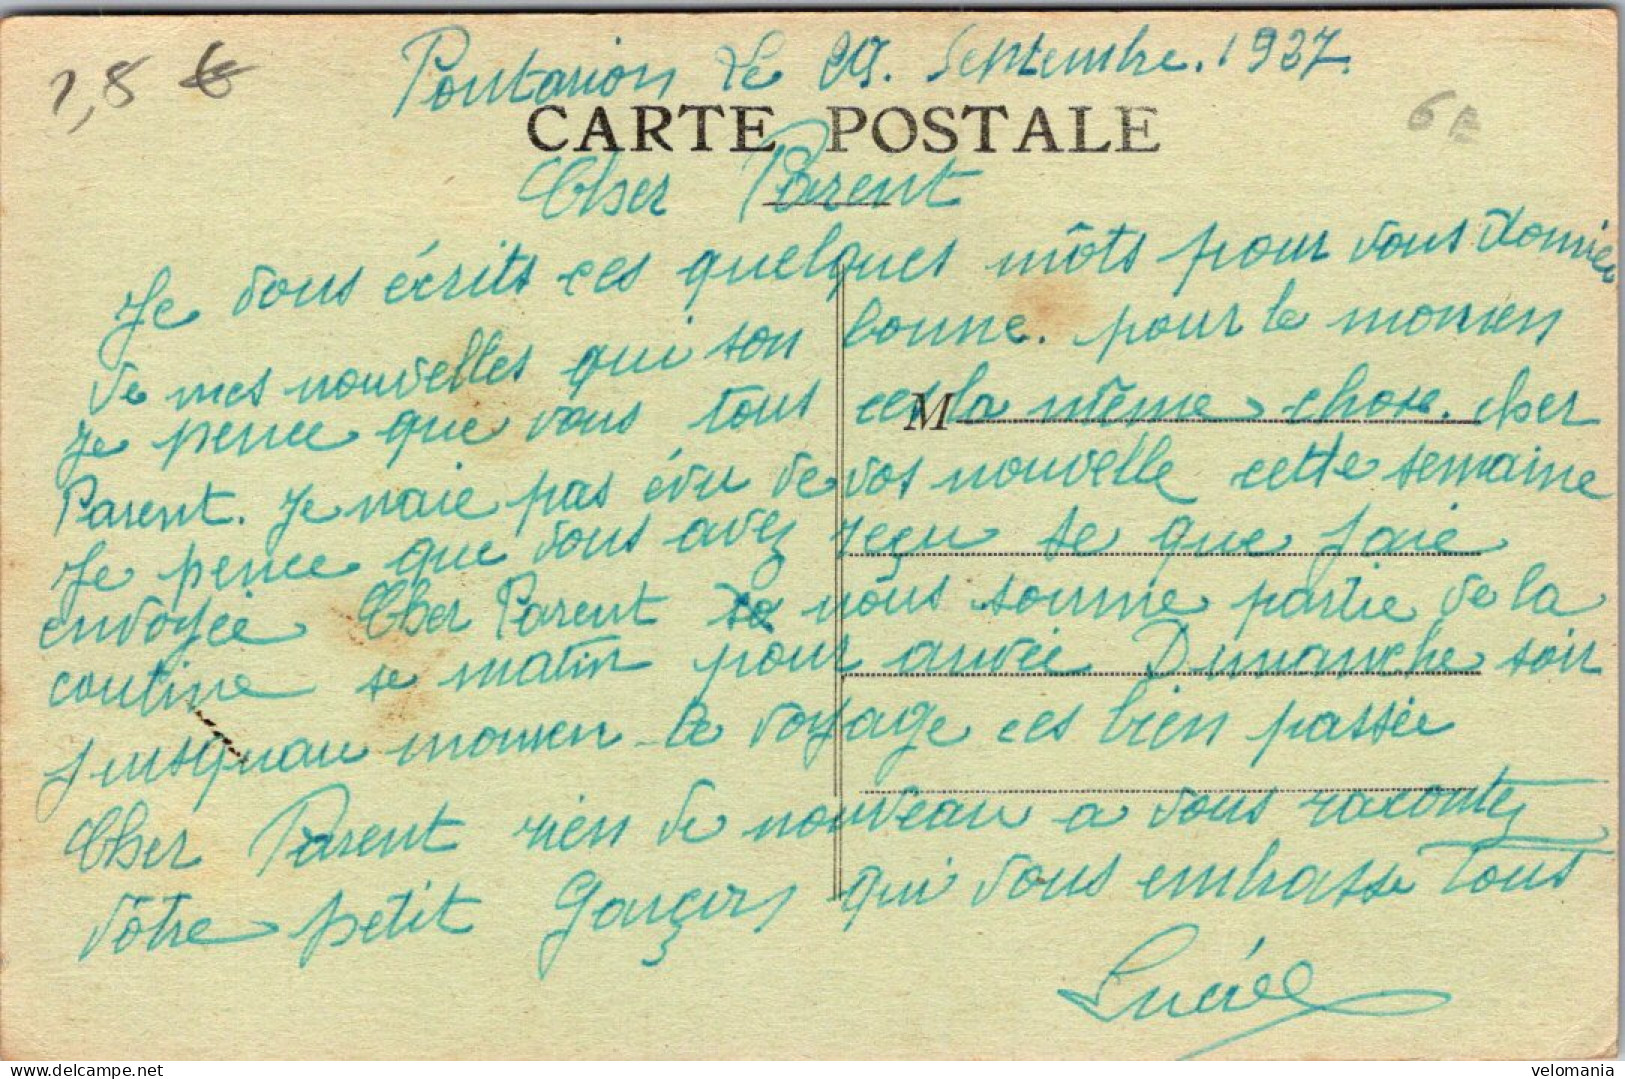 1,8 €
Pontarion le 29. Septembre. 1927.
CARTE POSTALE
Cher Parent
Je vous écrits ces quelques môts pour vous donnier
de mes nouvelles qui son bonne. pour le momen
Je pence que vous tous ces la même chose. cher
M
Parent. Je naie pas évu de vos nouvelle cette semaine
Je pence que vous avez reçu se que jaie
envoyée Cher Parent nous somme partie de la
coutine se matin pour arivée Dimanche soir
jusquau momen le voyage ces bien passée
Cher Parent rien de nouveau a vous racontez
vôtre petit Garçon qui vous embrasse tous
velomania